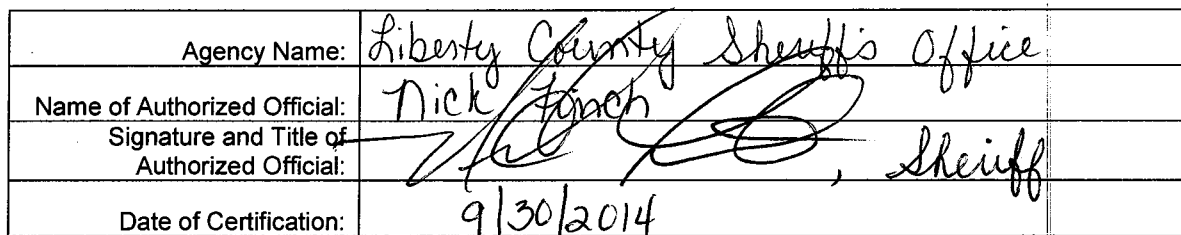 Agency Name: Liberty County Sheriff's Office
Name of Authorized Official: Nick Finch
Signature and Title of
Authorized Official: , Sheriff
Date of Certification: 9/30/2014